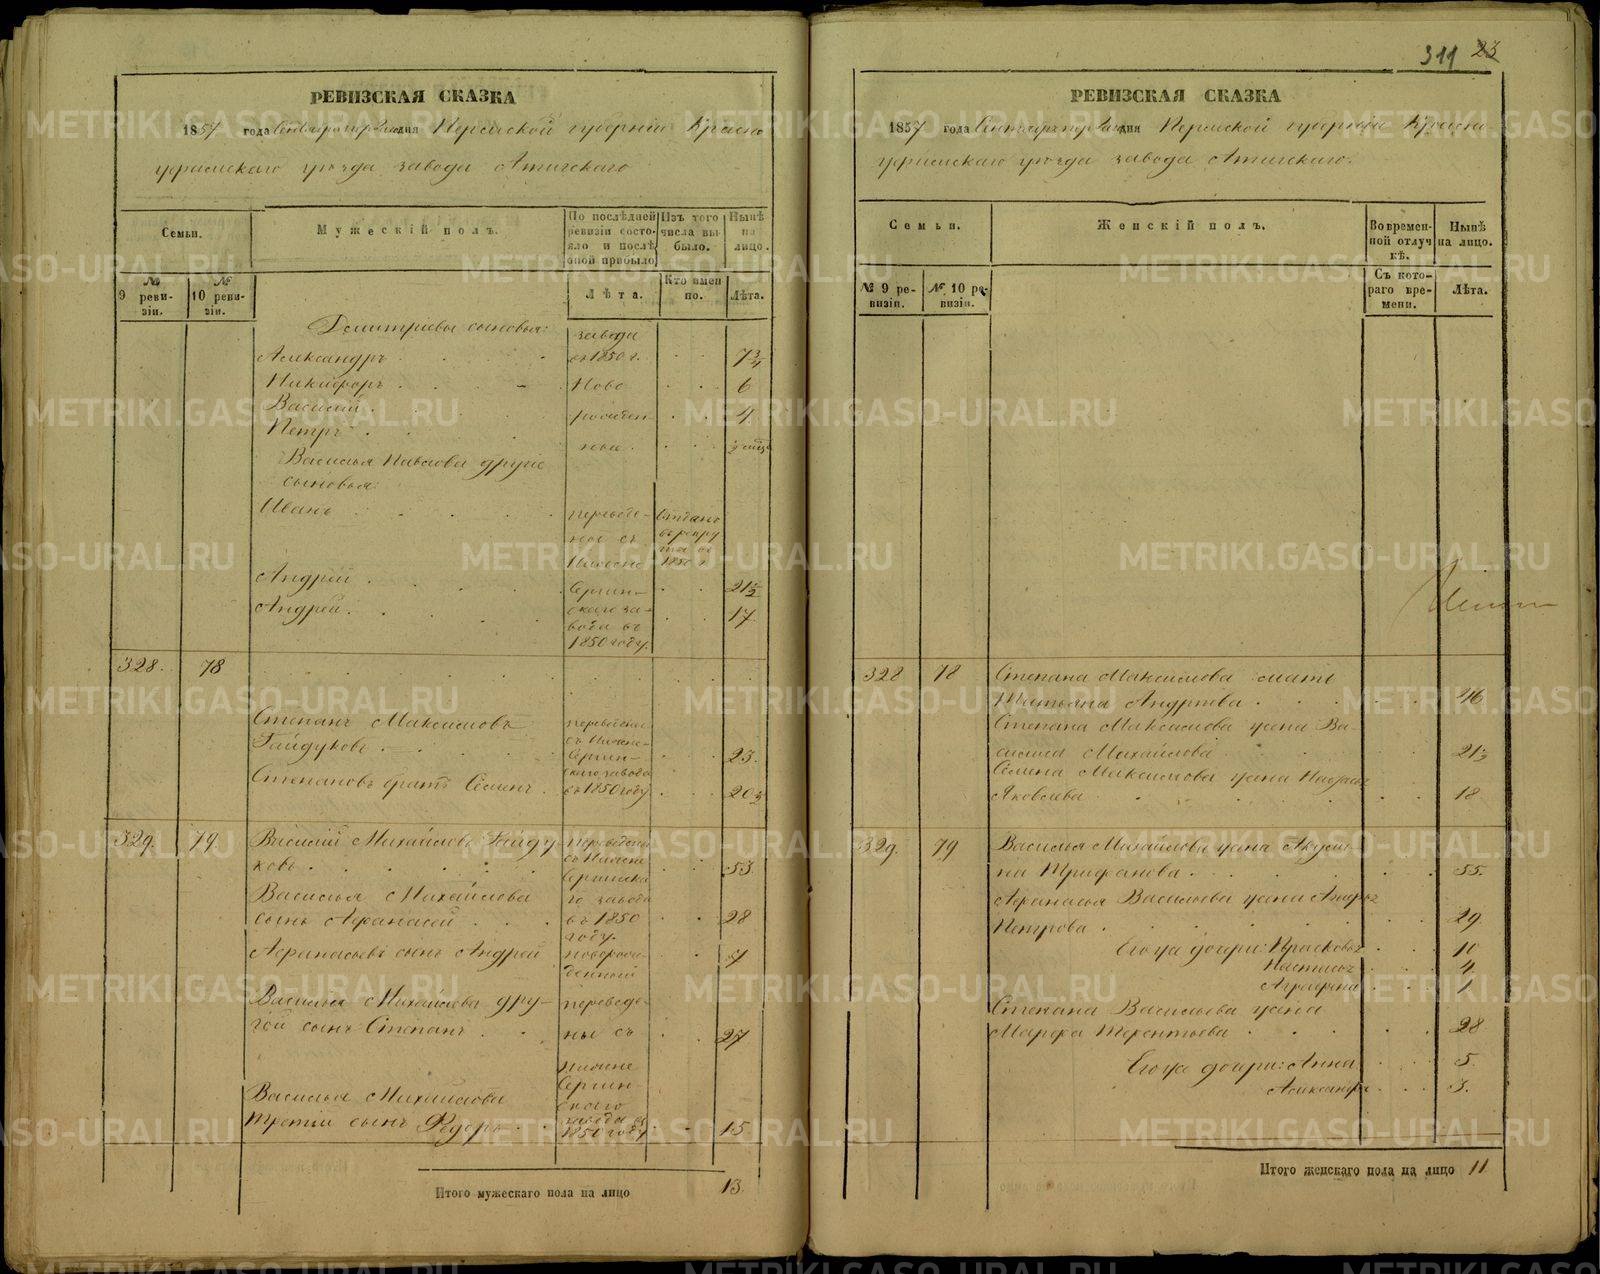 311 23
РЕВИЗСКАЯ СКАЗКА
1857 года Сентября дня Пермской губернiи Красно
уфимскаго уѣзда завода Атигскаго
Семьи.
Мужескiй полъ.
По послѣдней ревизiи состояло и послѣ оной прибыло
Изъ того числа выбыло.
Нынѣ на лицо.
№ 9 ревизiи.
№ 10 ревизiи.
Лѣта.
Кто именно.
Лѣта.
Дмитрiевы сыновья: завода
Александръ съ 1850 г. 7 3/4
Никифоръ Ново 6
Василiй рожден- 4
Петръ ные.
Василья Павлова другiе
сыновья:
Иванъ переведе- Отданъ
ные съ въ рекру
Нижне ты въ 1850 г.
Андрей Сергин- 21 1/2
Андрей скаго за- 17
вода въ
1850 году.
328. 78
Степанъ Максимовъ переведены
Гайдуковъ съ Нижне- 23.
Сергин-
Степановъ братъ Семенъ скаго завода
въ 1850 году 20 1/2
329. 79 Василiй Михайловъ Гайду переведены
ковъ съ Нижне 53
Сергинска
Василья Михайлова го завода
сынъ Афанасiй въ 1850 28
году.
Афанасьевъ сынъ Андрей новорож- 7
денный
Василья Михайлова дру- переведе-
гой сынъ Степанъ ны съ 27
Нижне
Василья Михайлова Сергин-
скаго
третiй сынъ Федоръ завода въ
1850 году 15
Итого мужескаго пола на лицо 13.
РЕВИЗСКАЯ СКАЗКА
1857 года Сентября дня Пермской губернiи Красно
уфимскаго уѣзда завода Атигскаго.
Семьи.
Женскiй полъ.
Во временной отлучкѣ.
Нынѣ на лицо.
№ 9 ревизiи.
№ 10 ревизiи.
Съ котораго времени.
Лѣта.
328 78 Степана Максимова мать
Татьяна Андреева 46
Степана Максимова жена Ва-
силиса Михайлова 21 1/2
Семена Максимова жена
Яковлева 18
329. 79 Василья Михайлова жена Акули-
на Трифанова 55.
Афанасья Васильева жена
Петрова 29.
Егожа дочери: Прасковья 10
Настасья 4.
Аграфена 1
Степана Васильева жена
Марфа Терентьева 28
Егожа дочери: Анна 5.
Александра 3.
Итого женскаго пола на лицо 11
METRIKI.GASO-URAL.RU